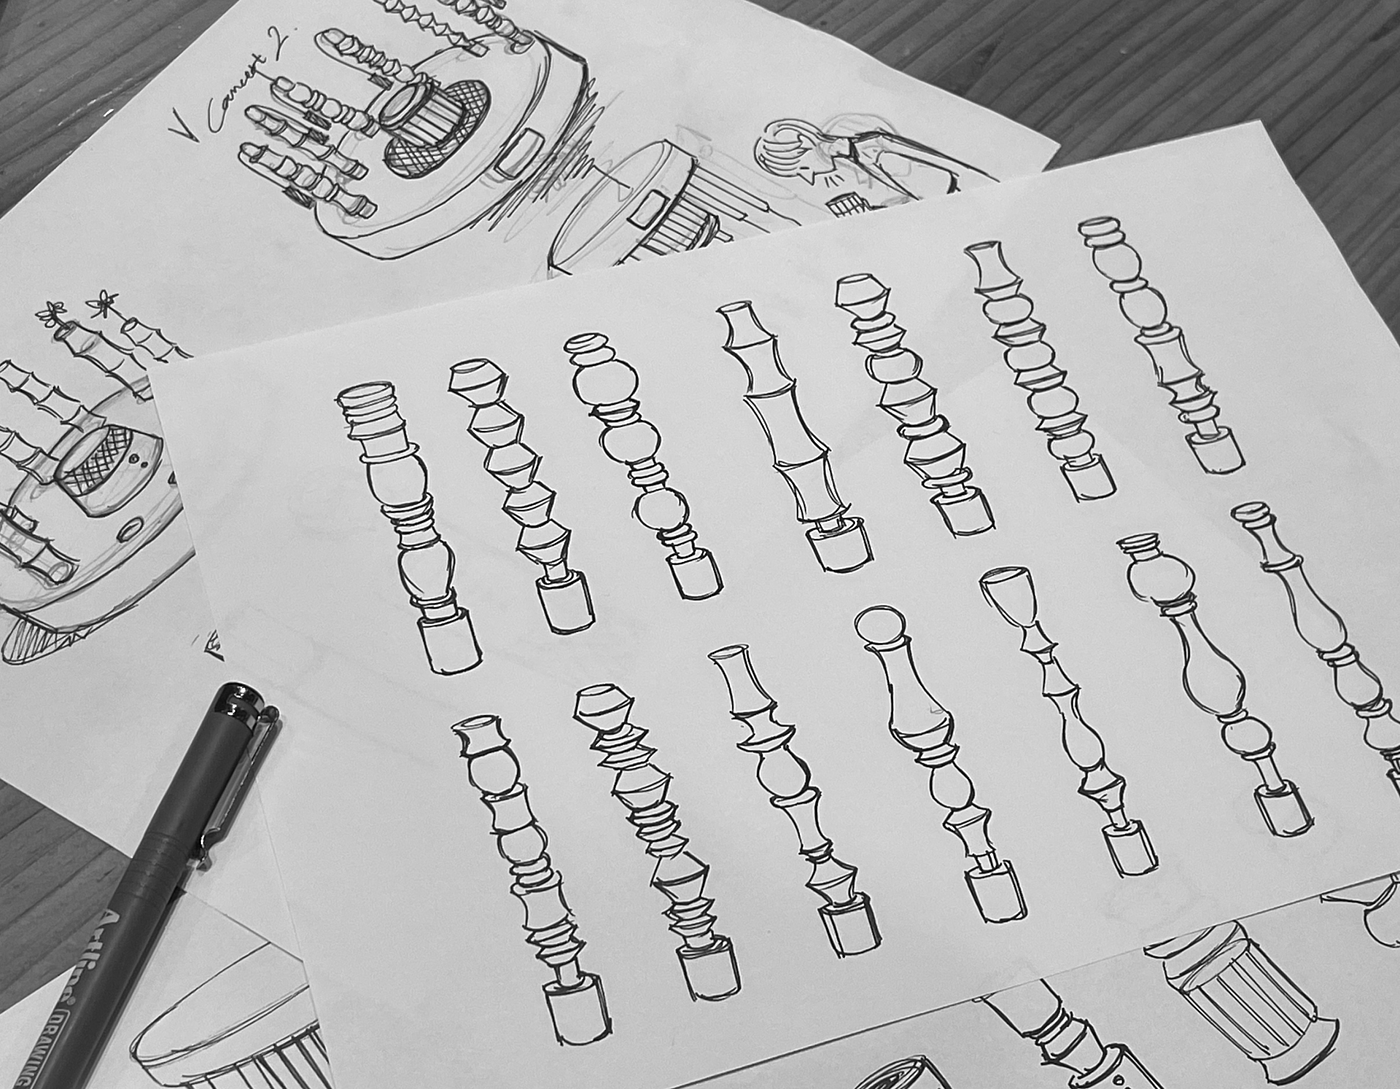 V Concept 2.
Artline
DRAWING